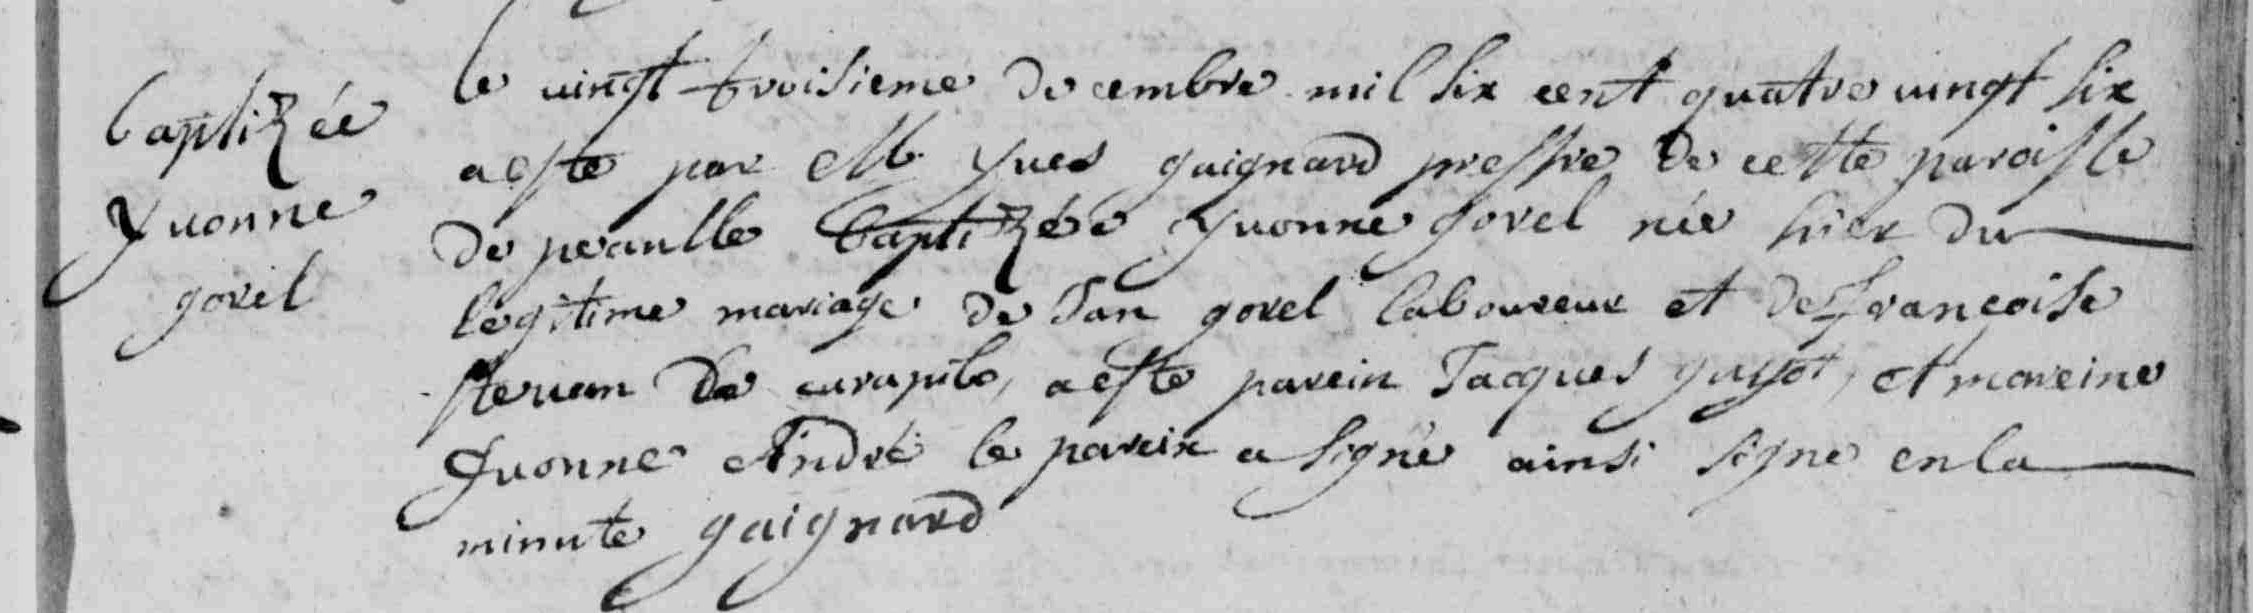 baptizée
Yuonne
govel
le uingt troisieme decembre mil six cent quatre uingt six
a este par M Yues gaignard prestre de cette paroisse
de peaulle baptizée yuonne govel née hier du
legitime mariage de Jan govel laboureur et de françoise
steuan de curapile, a este parein Jacques guyot, et mareine
Yuonne André le parein a signé ainsi signé en la
minute gaignard